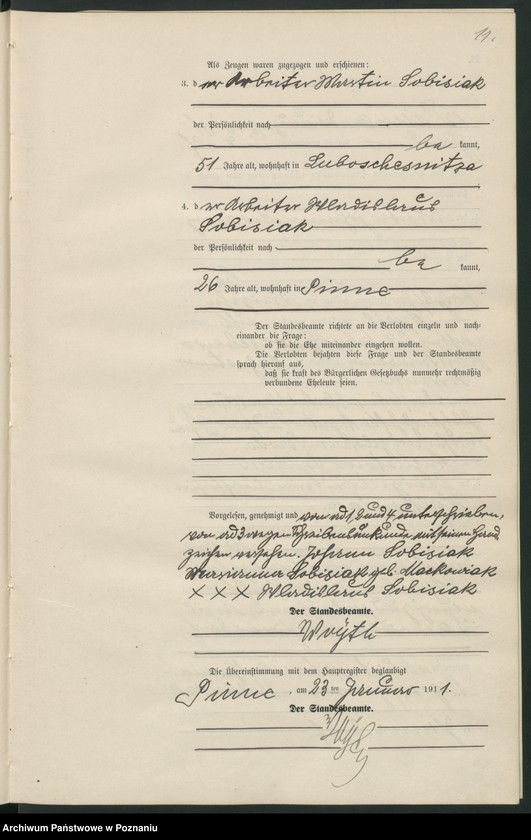 11.
Als Zeugen waren zugezogen und erschienen:
3. der Arbeiter Martin Sobisiak
der Persönlichkeit nach
be kannt,
51 Jahre alt, wohnhaft in Luboschesnitza
4. der Arbeiter Wladislaus
Sobisiak
der Persönlichkeit nach
be kannt,
26 Jahre alt, wohnhaft in Pinne
Der Standesbeamte richtete an die Verlobten einzeln und nach-
einander die Frage:
ob sie die Ehe miteinander eingehen wollen.
Die Verlobten bejahten diese Frage und der Standesbeamte
sprach hierauf aus,
daß sie kraft des Bürgerlichen Gesetzbuchs nunmehr rechtmäßig
verbundene Eheleute seien.
Vorgelesen, genehmigt und von ad 1, 2 und 4 unterschrieben,
von ad 3 wegen Schreibensunkunde mit seinem Hand
zeichen versehen. Johann Sobisiak
Sobisiak geb. Mackowiak
XXX Wladislaus Sobisiak
Der Standesbeamte.
Woyth
Die Übereinstimmung mit dem Hauptregister beglaubigt
Pinne, am 23 ten Januar 1911.
Der Standesbeamte.
Archiwum Państwowe w Poznaniu